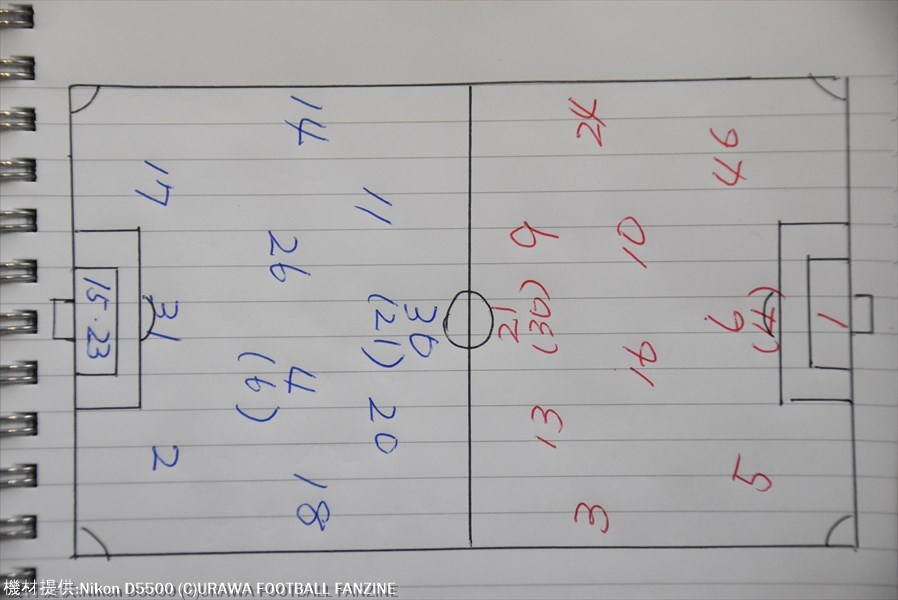 14
17
11
26
15・23
31
36
(21)
4
(6)
20
2
18
24
46
9
10
21
(30)
6
(4)
1
16
13
5
3
機材提供:Nikon D5500 (C)URAWA FOOTBALL FANZINE